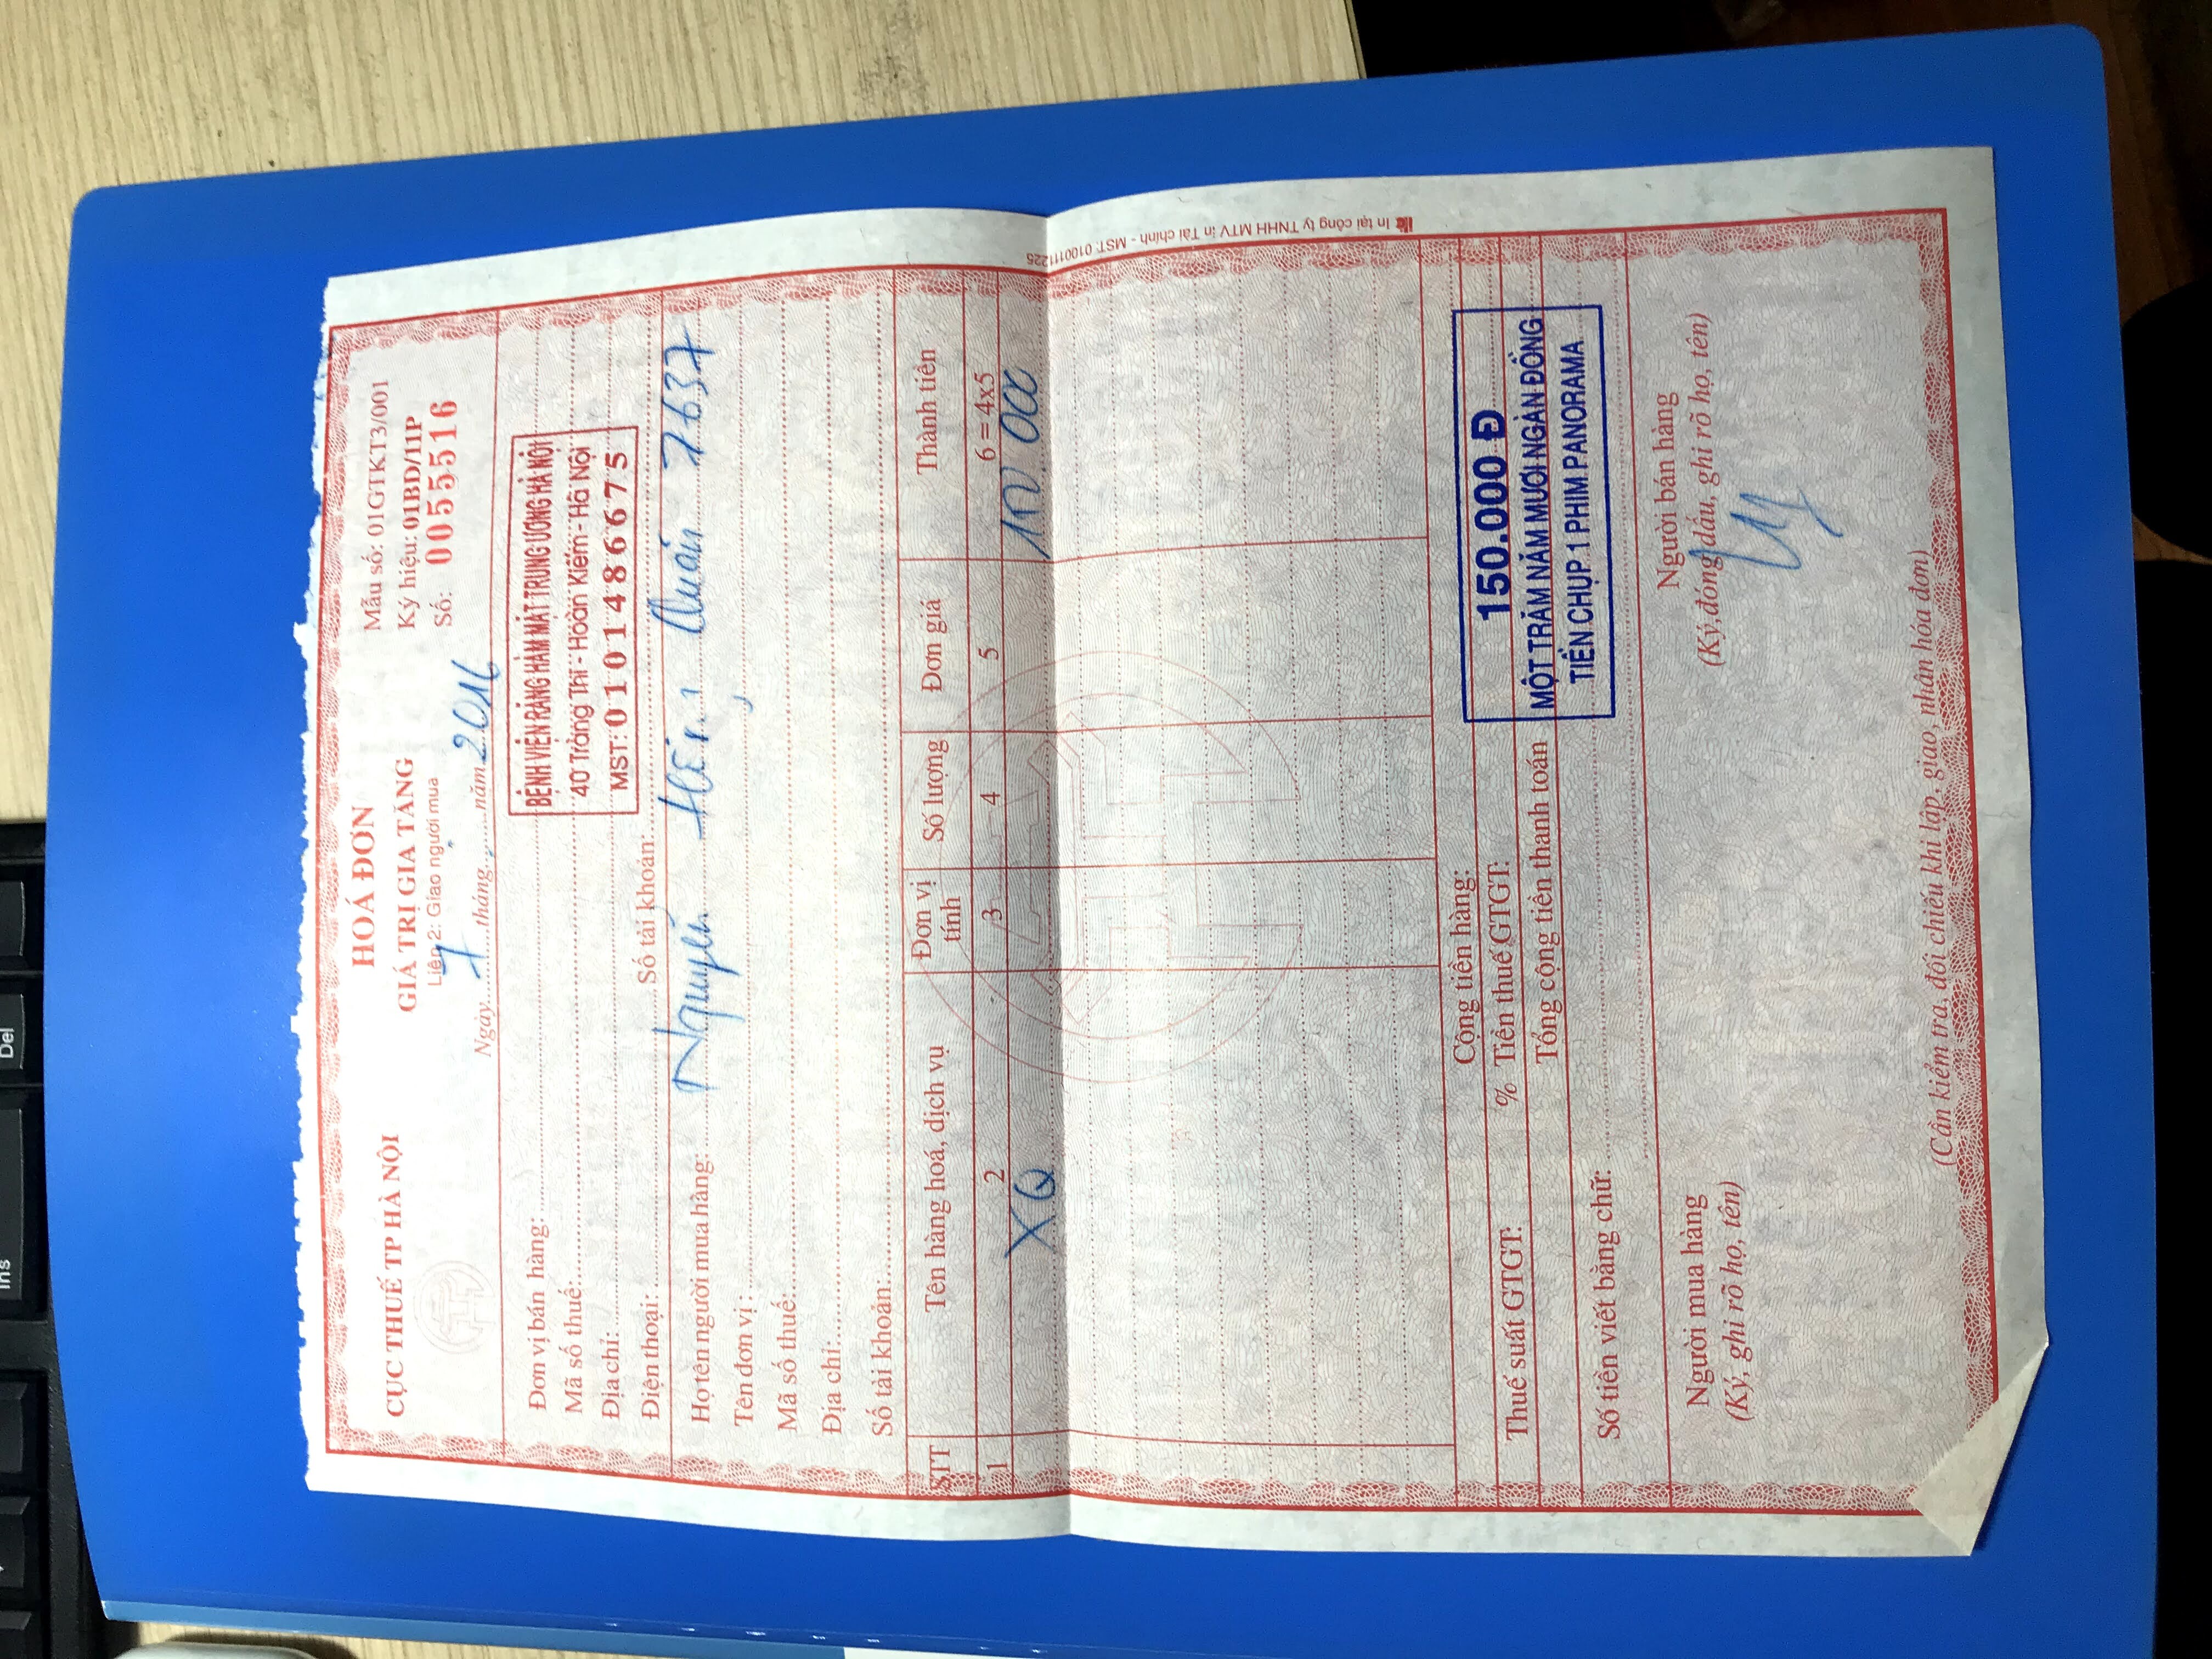 Ins Del
CỤC THUẾ TP HÀ NỘI
HOÁ ĐƠN
GIÁ TRỊ GIA TĂNG
Liên 2: Giao người mua
Ngày 7 tháng năm 2016
Mẫu số: 01GTKT3/001
Ký hiệu: 01BD/11P
Số: 0055516
Đơn vị bán hàng:
Mã số thuế:
Địa chỉ:
Điện thoại: Số tài khoản:
BỆNH VIỆN RĂNG HÀM MẶT TRUNG ƯƠNG HÀ NỘI
40 Tràng Thi - Hoàn Kiếm - Hà Nội
MST: 0101486675
Họ tên người mua hàng: Nguyễn Quân 7637
Tên đơn vị :
Mã số thuế:
Địa chỉ:
Số tài khoản:
STT Tên hàng hoá, dịch vụ Đơn vị tính Số lượng Đơn giá Thành tiền
1 2 3 4 5 6 = 4x5
XQ 150.000
Cộng tiền hàng:
Thuế suất GTGT: % Tiền thuế GTGT:
Tổng cộng tiền thanh toán
Số tiền viết bằng chữ:
150.000 Đ
MỘT TRĂM NĂM MƯƠI NGÀN ĐỒNG
TIỀN CHỤP 1 PHIM PANORAMA
Người mua hàng
(Ký, ghi rõ họ, tên)
Người bán hàng
(Ký,đóng dấu, ghi rõ họ, tên)
(Cần kiểm tra, đối chiếu khi lập, giao, nhận hóa đơn)
In tại công ty TNHH MTV In Tài chính - MST: 0100111225